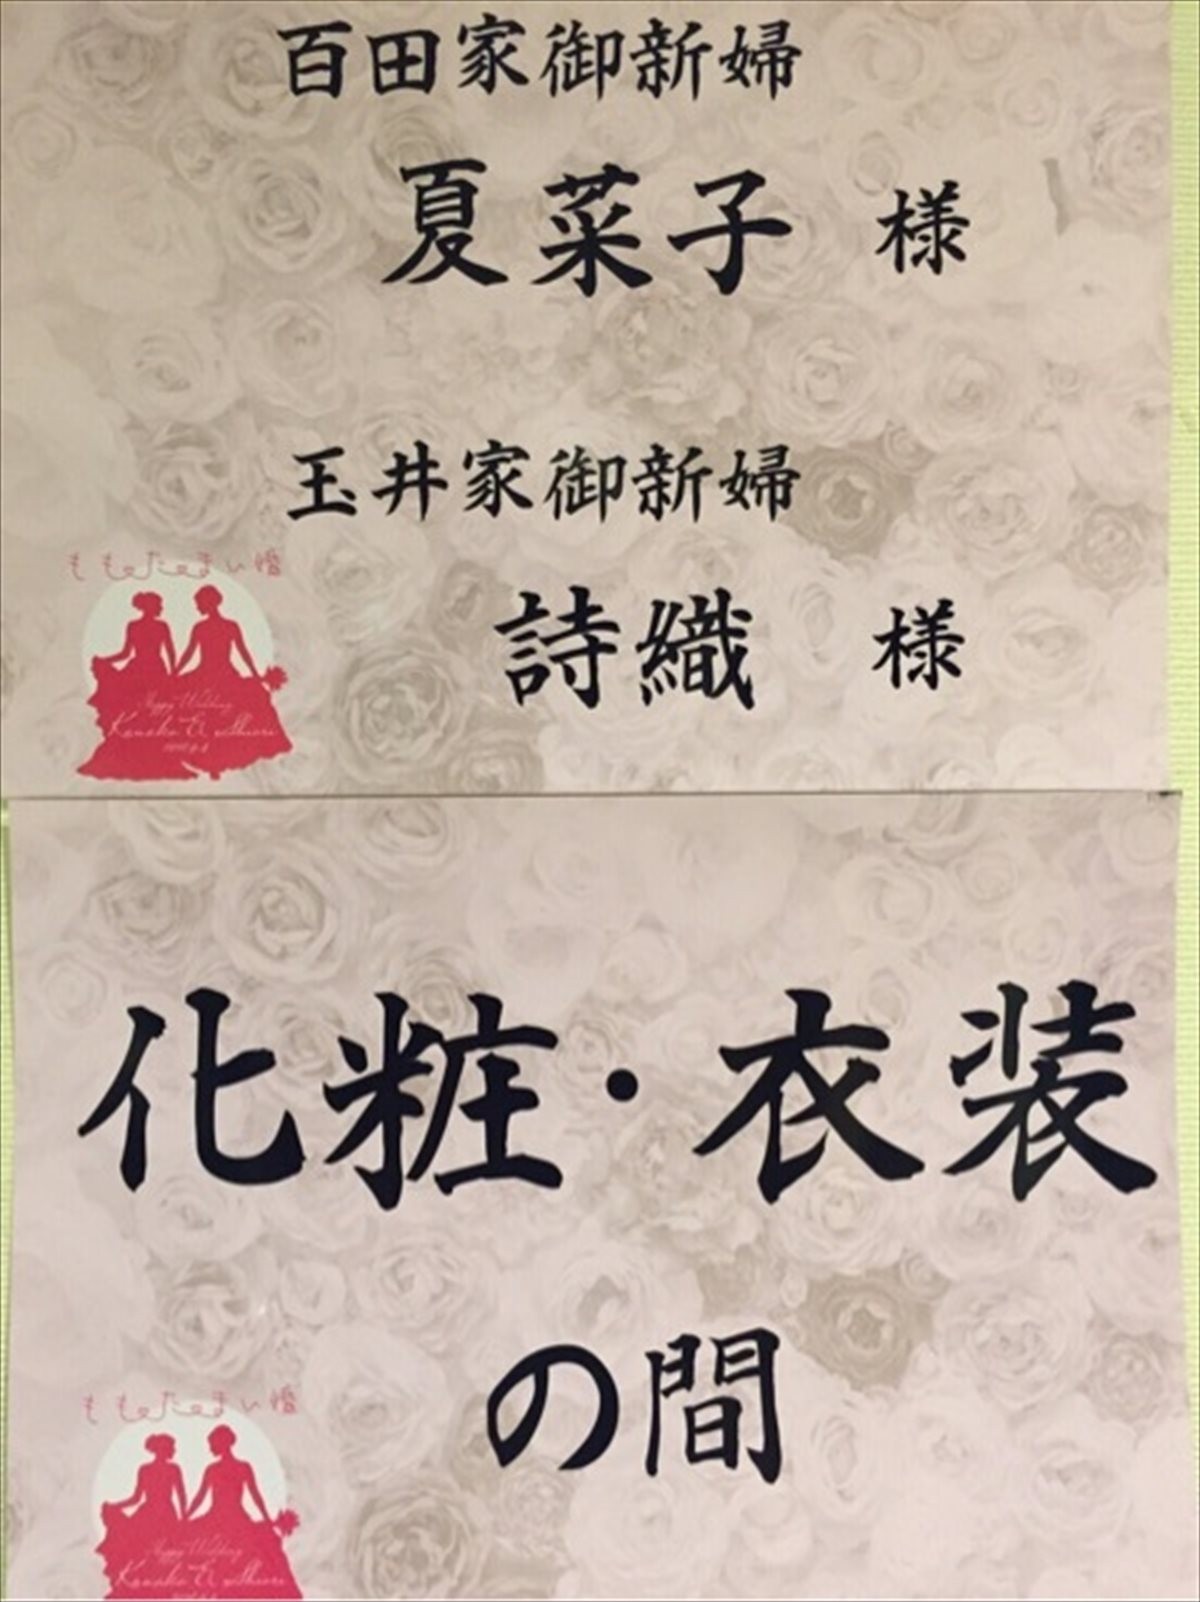 百田家御新婦
夏菜子 様
玉井家御新婦
詩織 様
ももたまい婚
Happy Wedding
Kanako & Shiori
化粧・衣装
の間
ももたまい婚
Happy Wedding
Kanako & Shiori